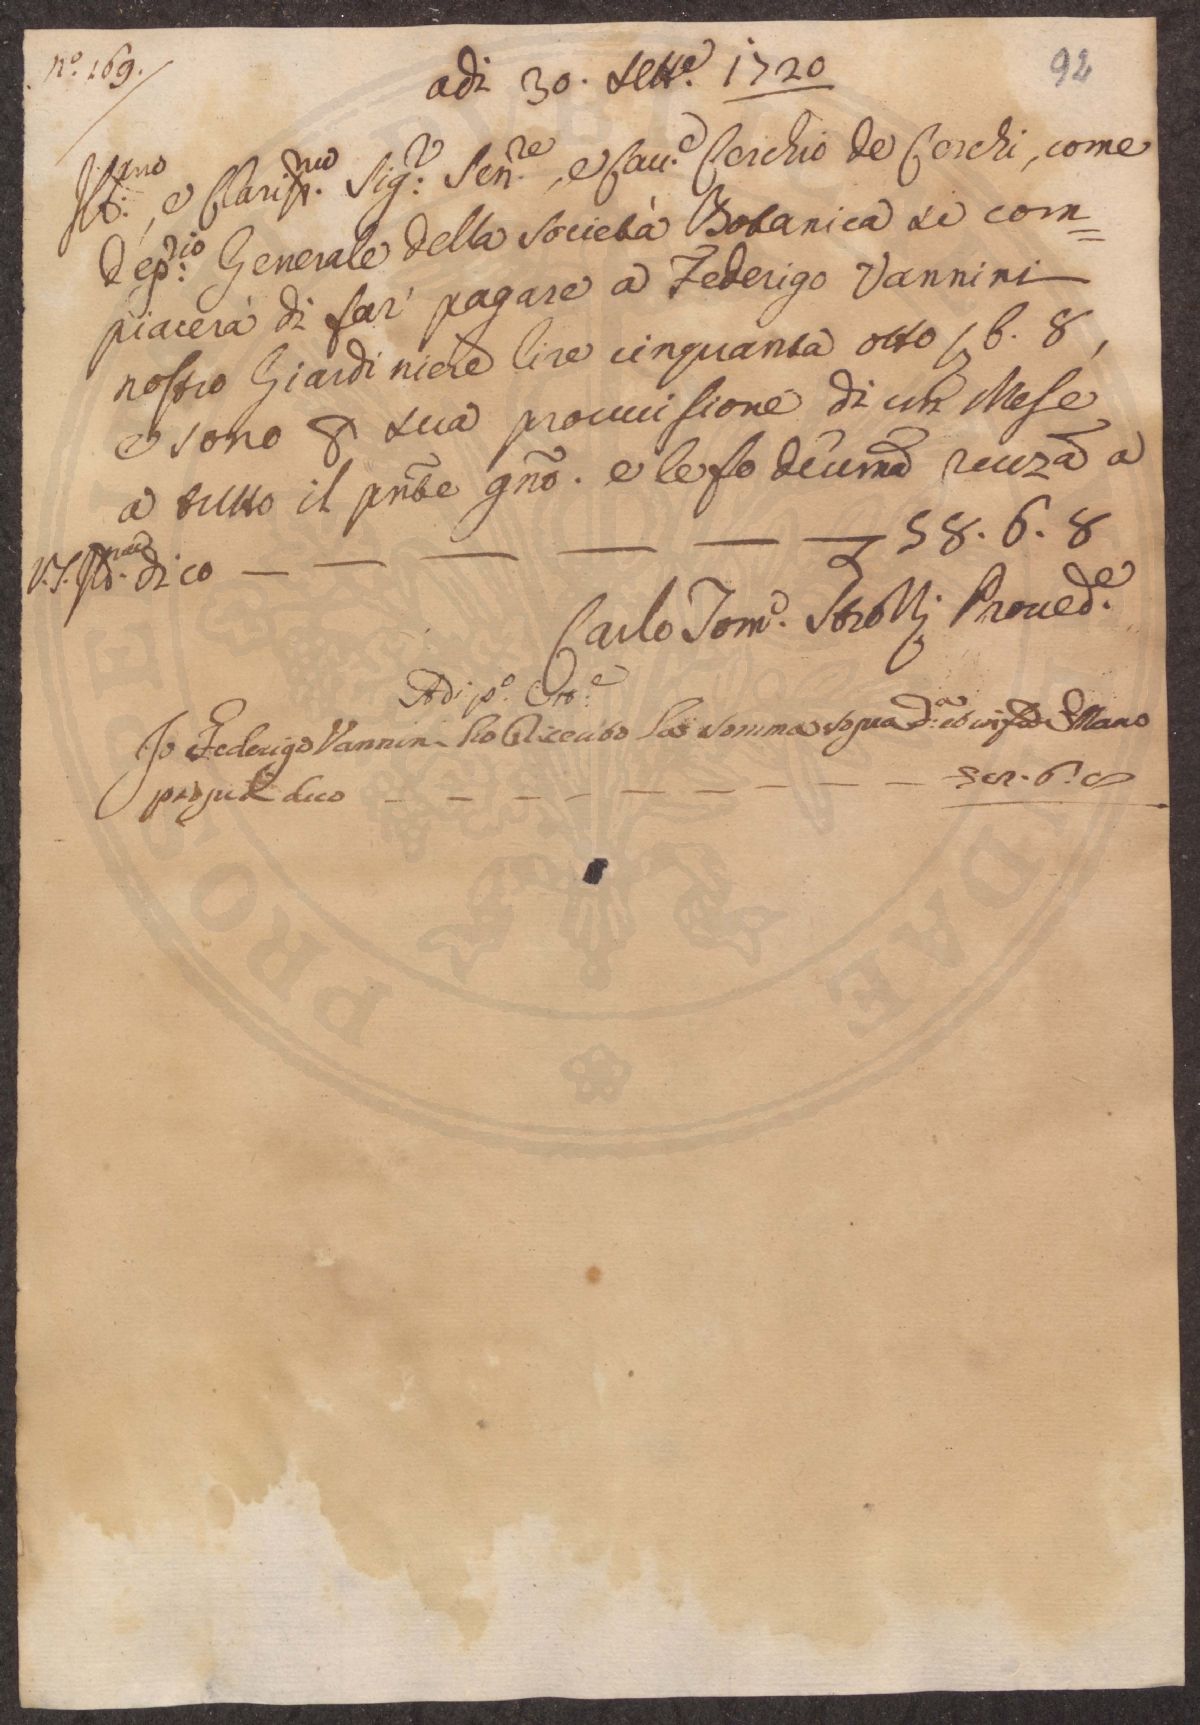 N.º 169.
92
adi 30. Sett.e 1720
Ill.mo, e Clariss.mo Sig.r Sen.re, e Cau.e Cerchio de Cerchi, come
Dep.rio Generale della Società Botanica si com=
piacerà di far' pagare a Federigo Vannini
nostro Giardiniere lire cinquanta otto s 6. 8,
e sono p sua prouuisione di un Mese
a tutto il pnte gno. e le fo deuma reuza a
V.S. Ill.ma dico — — — — — — £ 58. 6. 8
Carlo Tom.o Strozzj Proued.e
Adi p.o Ott.e
Io Federigo Vannini ho Riceuto la somma sopra d.a Mano
propria dico — — — — — — — — — 58. 6. 8
PUBLICAE
PROS